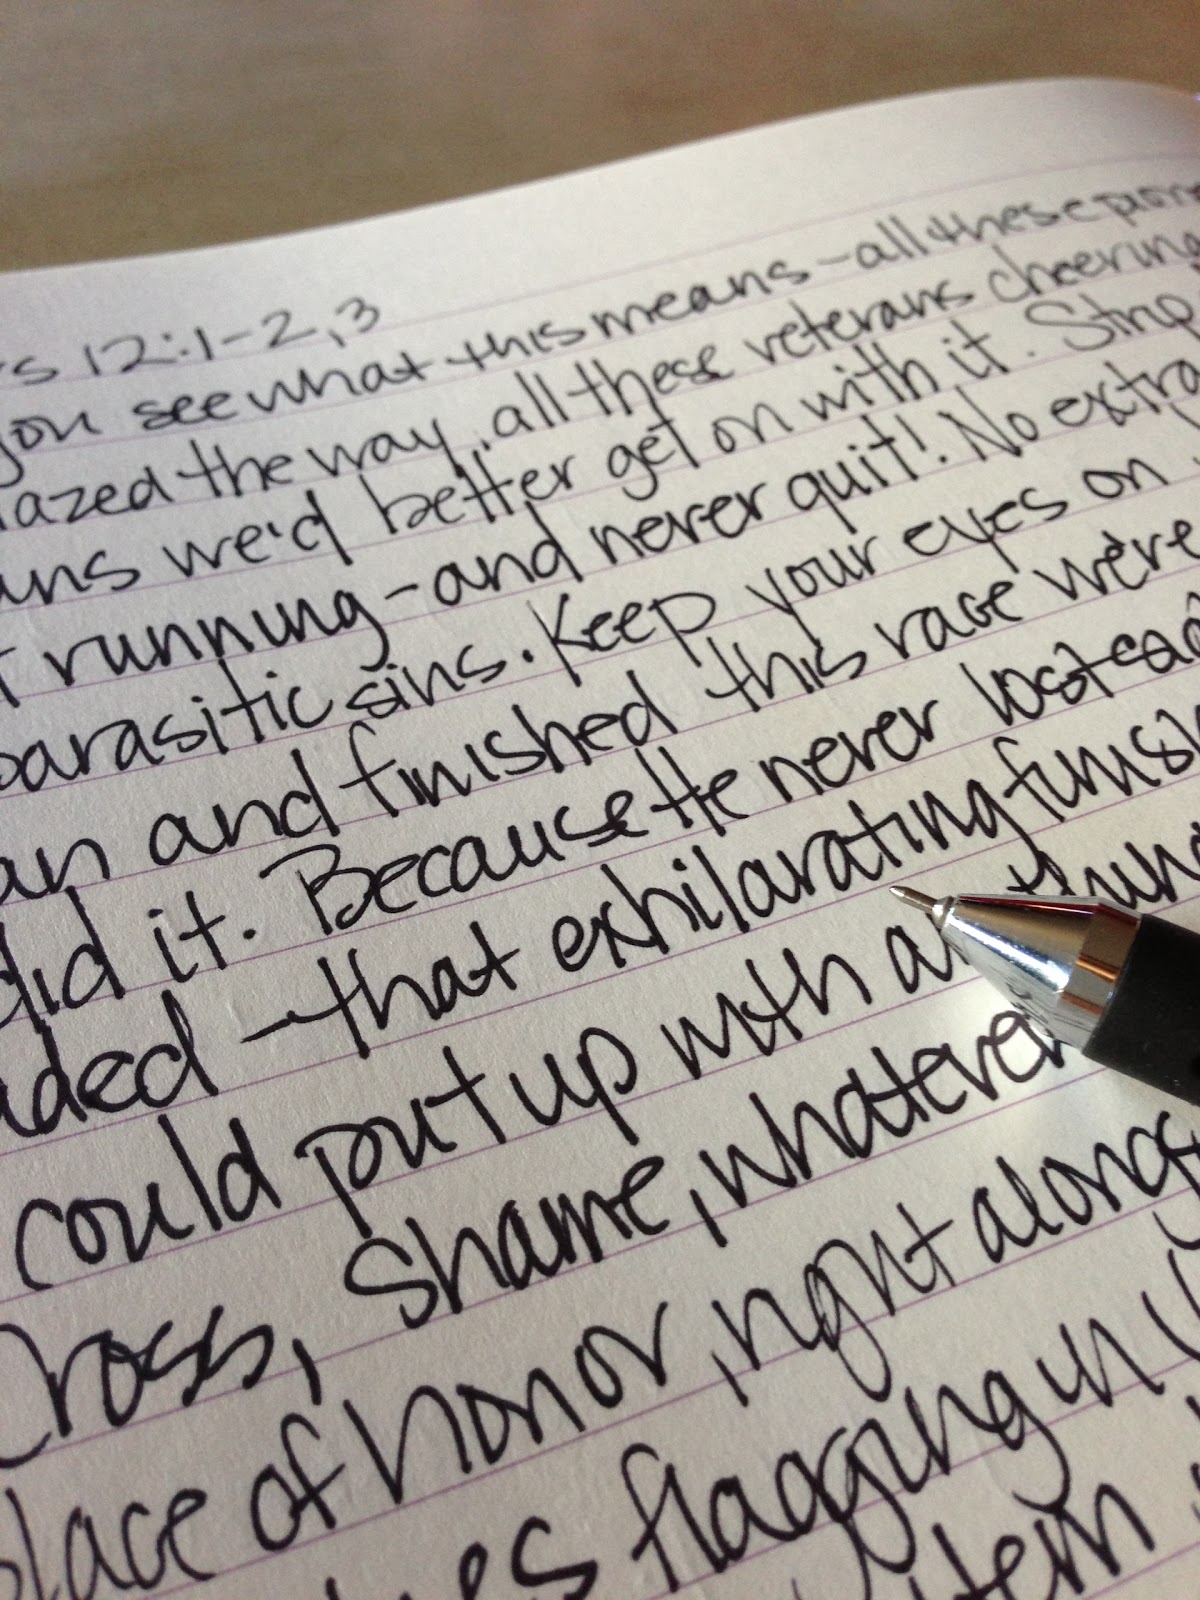 s 12:1-2,3
you see what this means - all these
lazed the way, all these veterans cheering
ans we'd better get on with it. Strip
t running - and never quit! No extra
parasitic sins. Keep your eyes on
an and finished this race we're
did it. Because He never lost
aded - that exhilarating finish
could put up with an thing
Cross, Shame, whatever
place of honor, right alongs
es flagging in
tem